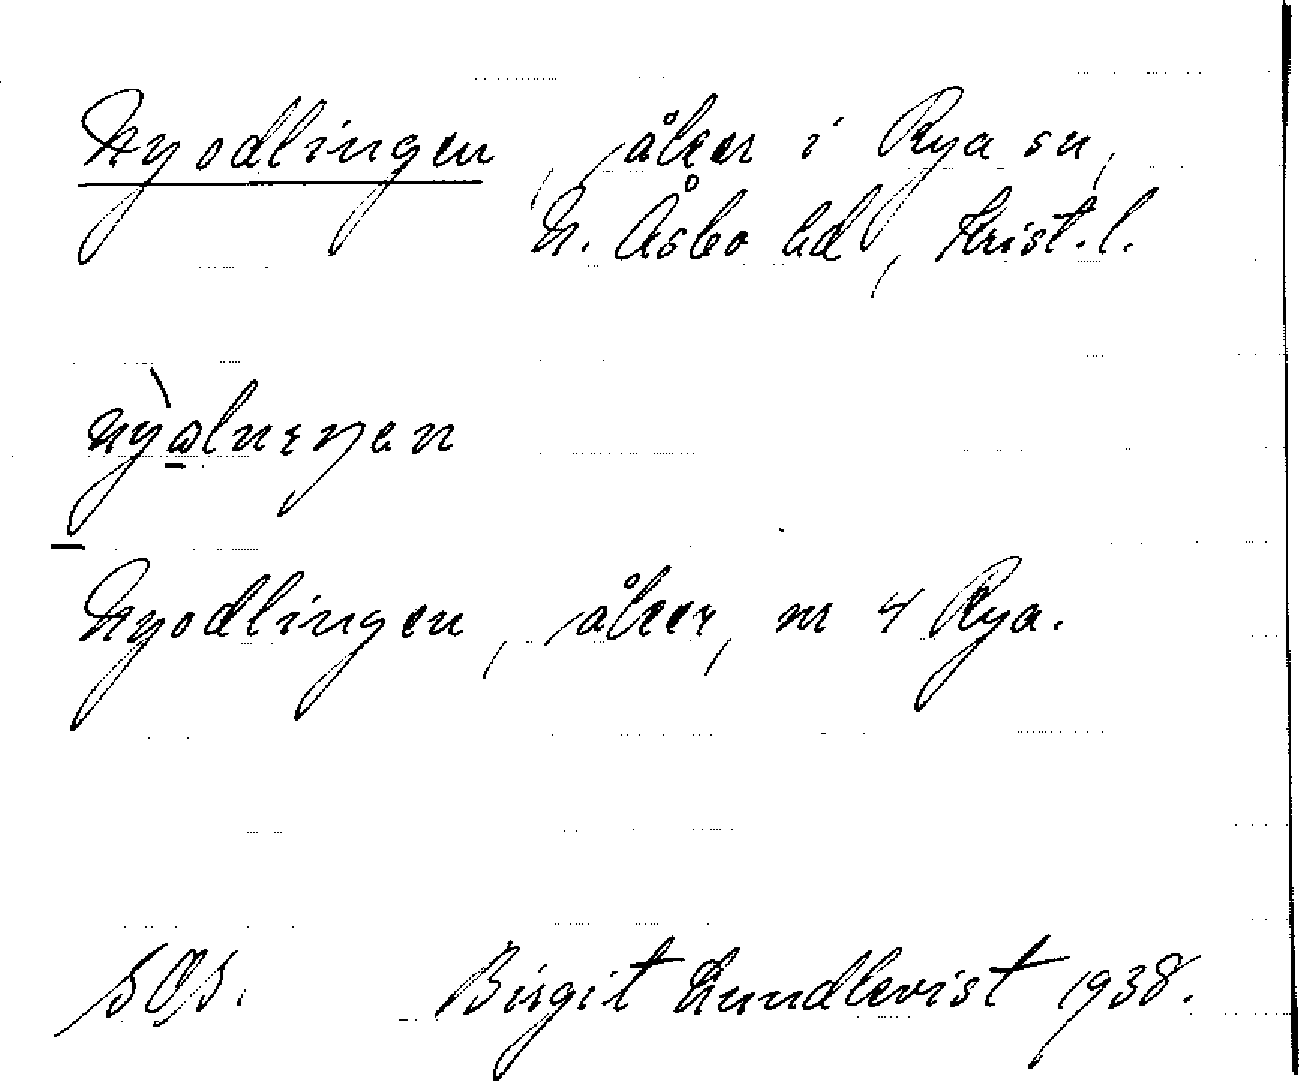 Nyodlingen, åker i Rya sn,
N. Åsbo hd, Krist. l.
Nyodlingen, åker, m 4 Rya.
Birgit Lundkvist 1938.